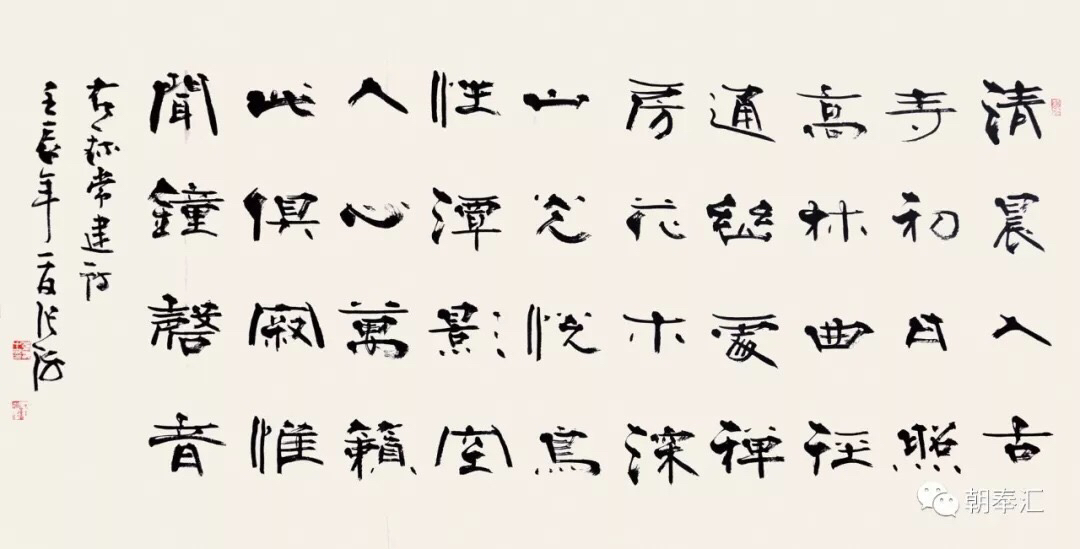 清晨入古
寺初日照
高林曲径
通幽處禅
房花木深
山光悦鳥
性潭影空
人心萬籟
此俱寂惟
聞鐘磬音
右録常建詩
壬辰年夏张海
朝奉汇